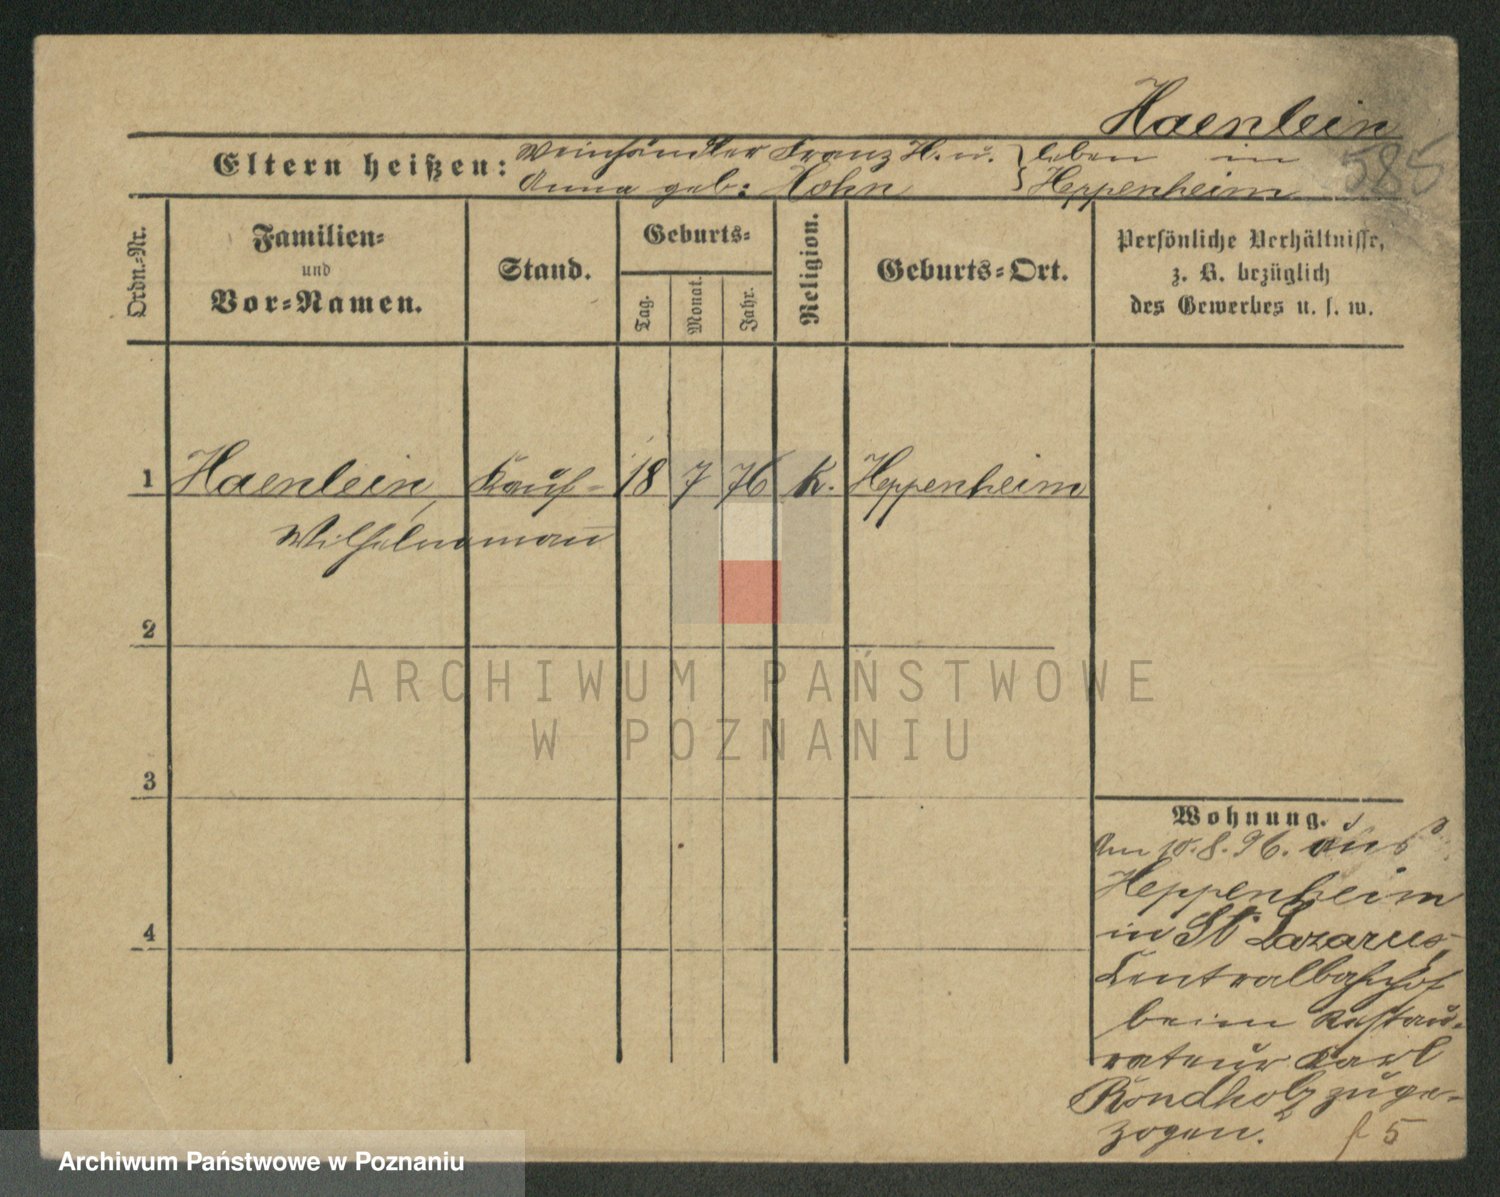 Haenlein
585
Eltern heißen: Weinhändler Franz H. u. } leben in
Anna geb: Hohn } Heppenheim
Ordn.-Nr.
Familien-
und
Vor-Namen.
Stand.
Geburts-
Tag.
Monat.
Jahr.
Religion.
Geburts-Ort.
Persönliche Verhältnisse,
z. B. bezüglich
des Gewerbes u. s. w.
1 Haenlein, Kauf- 18 7 76 K. Heppenheim
Wilhelm mann
2
ARCHIWUM PAŃSTWOWE
W POZNANIU
3
Wohnung.
Am 10.8.96. aus
Heppenheim
in St Lazarus,
4
Centralbahnhof
beim Restau-
rateur Karl
Rondholz zuge-
zogen.
5
Archiwum Państwowe w Poznaniu